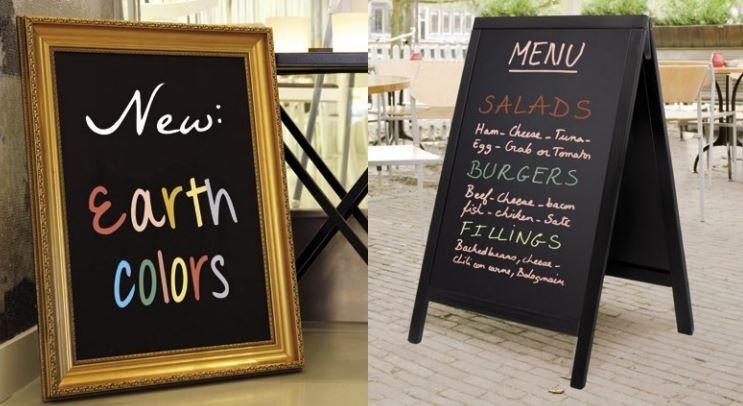 New:
Earth
colors
MENU
SALADS
Ham - Cheese - Tuna -
Egg - Crab or Tomaton
BURGERS
Beef - cheese - bacon
fish - chicken - Sate
FILLINGS
Backed beans, cheese -
Chili con carne, Bolognaise